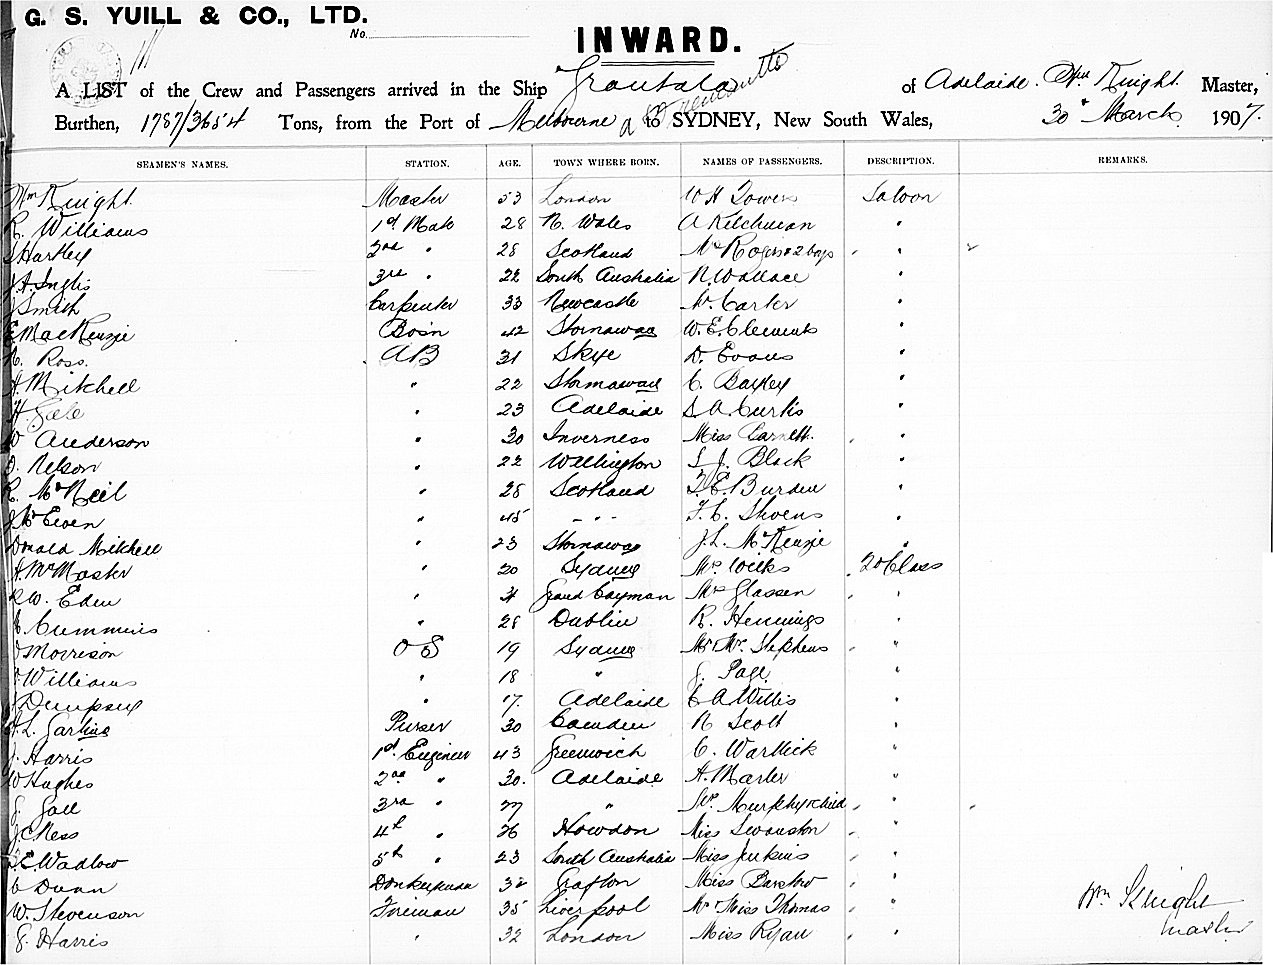 G. S. YUILL & CO., LTD.
No.
INWARD.
A LIST of the Crew and Passengers arrived in the Ship Grantala of Adelaide. Wm Knight. Master,
Burthen, 1787/3654 Tons, from the Port of Melbourne & Fremantle to SYDNEY, New South Wales, 30th March 1907.
SEAMEN'S NAMES. STATION. AGE. TOWN WHERE BORN. NAMES OF PASSENGERS. DESCRIPTION. REMARKS.
Wm Knight Master 53 London W H Towers Saloon
R. Williams 1st Mate 28 N. Wales A Kelchman "
Hartley 2nd " 28 Scotland Mrs Rogers & 2 boys "
J. A. Inglis 3rd " 22 South Australia N. Wallace "
J Smith Carpenter 33 Newcastle Mr. Carter "
E MacKenzie Bosn 42 Stornaway W. E. Clements "
N. Ross. AB 31 Skye D. Evans "
A. Mitchell " 22 Stornaway C. Bayley "
H. Gale " 23 Adelaide S. A. Curtis "
W Anderson " 30 Inverness Miss Barnett. "
D. Nelson " 22 Wellington S. J. Black "
R. McNeil " 28 Scotland T. E. Burden "
J McEwen " 45 " " " F. C. Stevens "
Donald Mitchell " 23 Stornaway J. L. McKenzie "
A. McMaster " 20 Sydney Mrs Wilks 2nd Class
R W. Eden " Grand Cayman Mrs Glassen "
Cummins " 28 Dublin R. Hennings "
Morrison O S 19 Sydney Mr & Mrs. Stephens "
Williams " 18 " J. Page "
Dempsey " 17. Adelaide C A Willis "
A. L. Garling Purser 30 Camden N Scott "
J. Harris 1st Engineer 43 Greenwich C. Warllick "
W Hughes 2nd " 30. Adelaide A. Marler "
J. Gall 3rd " 27 " Mrs. Murphy & child "
J C Ness 4th " 26 Howdon Miss Swanston "
T. E. Wadlow 5th " 23 South Australia Miss Jenkins "
C Dunn Donkeyman 32 Grafton Miss Barstow "
W. Stevenson Fireman 35 Liverpool Mr & Miss Thomas "
G. Harris " 32 London Miss Ryan "
Wm Knight
Master